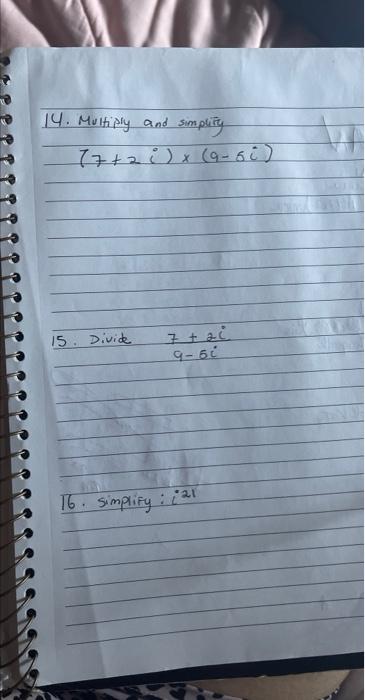 14. Multiply and simplify
(7+2i) x (9-5i)
15. Divide 7 + 2i
9-5i
16. simplify : i²¹